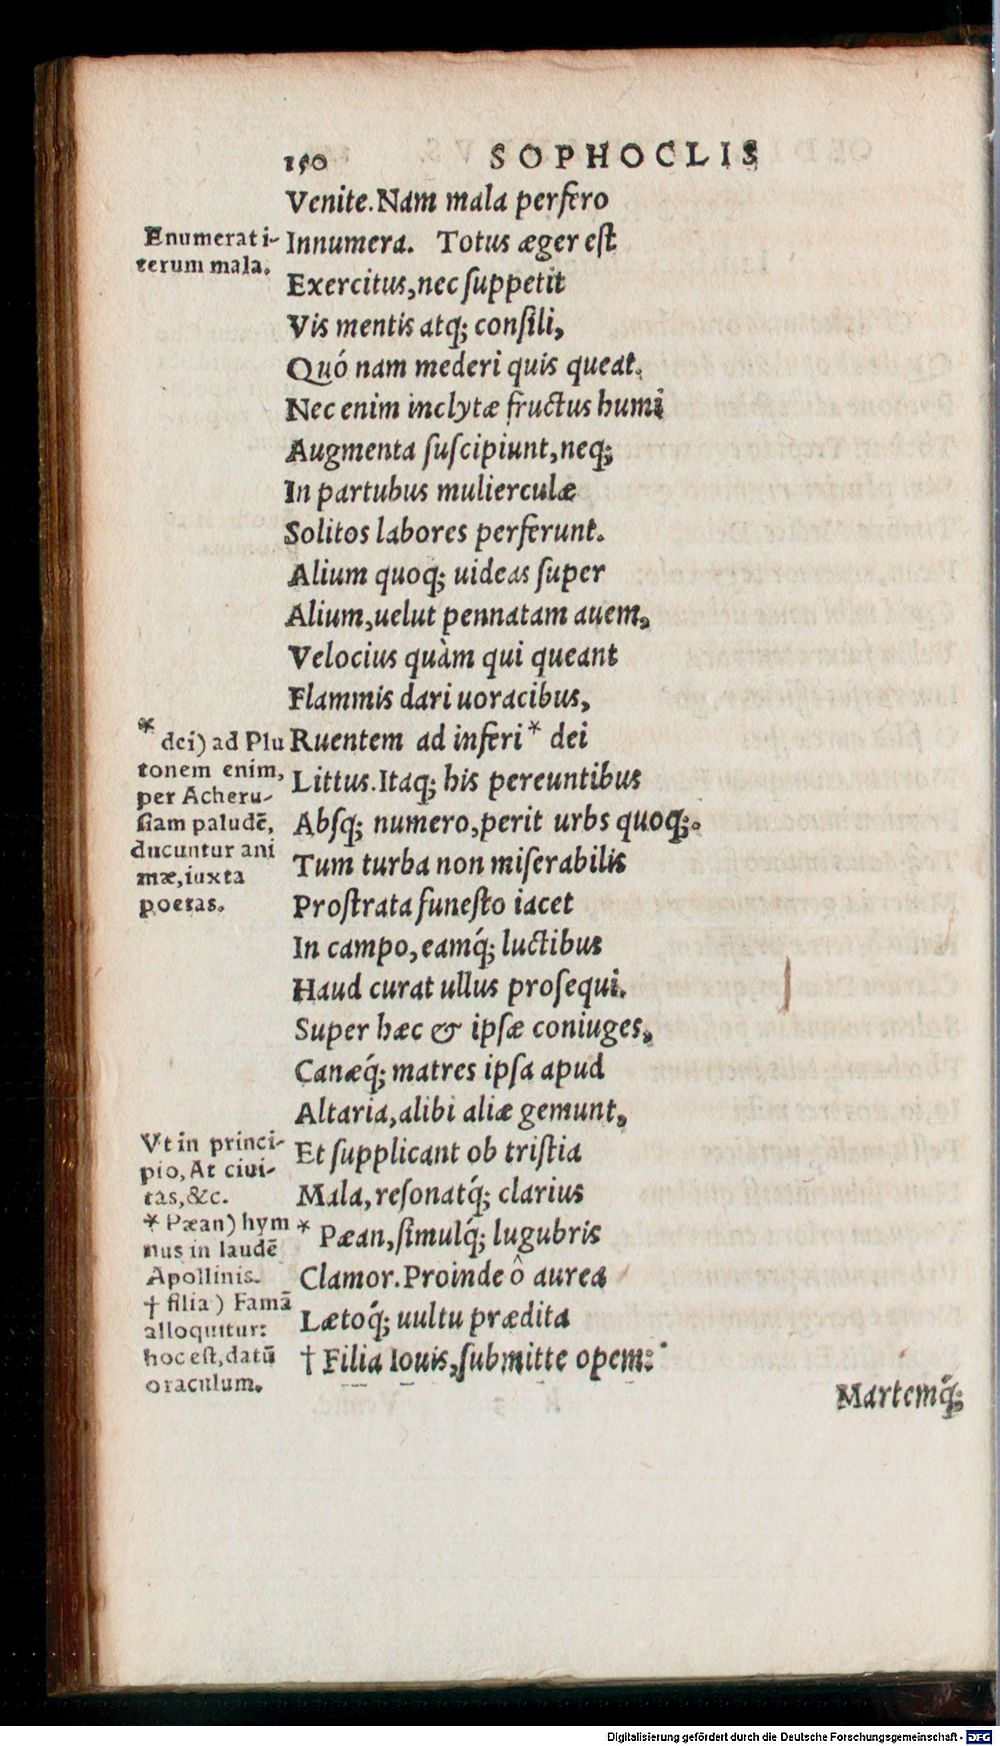 150 SOPHOCLIS
Venite. Nam mala perfero
Enumerat i-
terum mala.
Innumera. Totus æger est
Exercitus, nec suppetit
Vis mentis atq; consili,
Quó nam mederi quis queat.
Nec enim inclytæ fructus humi
Augmenta suscipiunt, neq;
In partubus mulierculæ
Solitos labores perferunt.
Alium quoq; uideas super
Alium, uelut pennatam auem,
Velocius quàm qui queant
Flammis dari uoracibus,
Ruentem ad inferi * dei
* dei) ad Plu
tonem enim,
per Acheru-
siam paludē,
ducuntur ani
mæ, iuxta
poetas.
Littus. Itaq; his pereuntibus
Absq; numero, perit urbs quoq;.
Tum turba non miserabilis
Prostrata funesto iacet
In campo, eamq́; luctibus
Haud curat ullus prosequi.
Super hæc & ipsæ coniuges,
Canæq́; matres ipsa apud
Altaria, alibi aliæ gemunt,
Et supplicant ob tristia
Vt in princi-
pio, At ciui-
tas, &c.
Mala, resonatq́; clarius
* Pæan, simulq́; lugubris
* Pæan) hym
nus in laudē
Apollinis.
Clamor. Proinde ô aurea
Lætoq́; uultu prædita
† Filia Iouis, submitte opem:
† filia) Famā
alloquitur:
hoc est, datū
oraculum.
Martemq́;
Digitalisierung gefördert durch die Deutsche Forschungsgemeinschaft - DFG